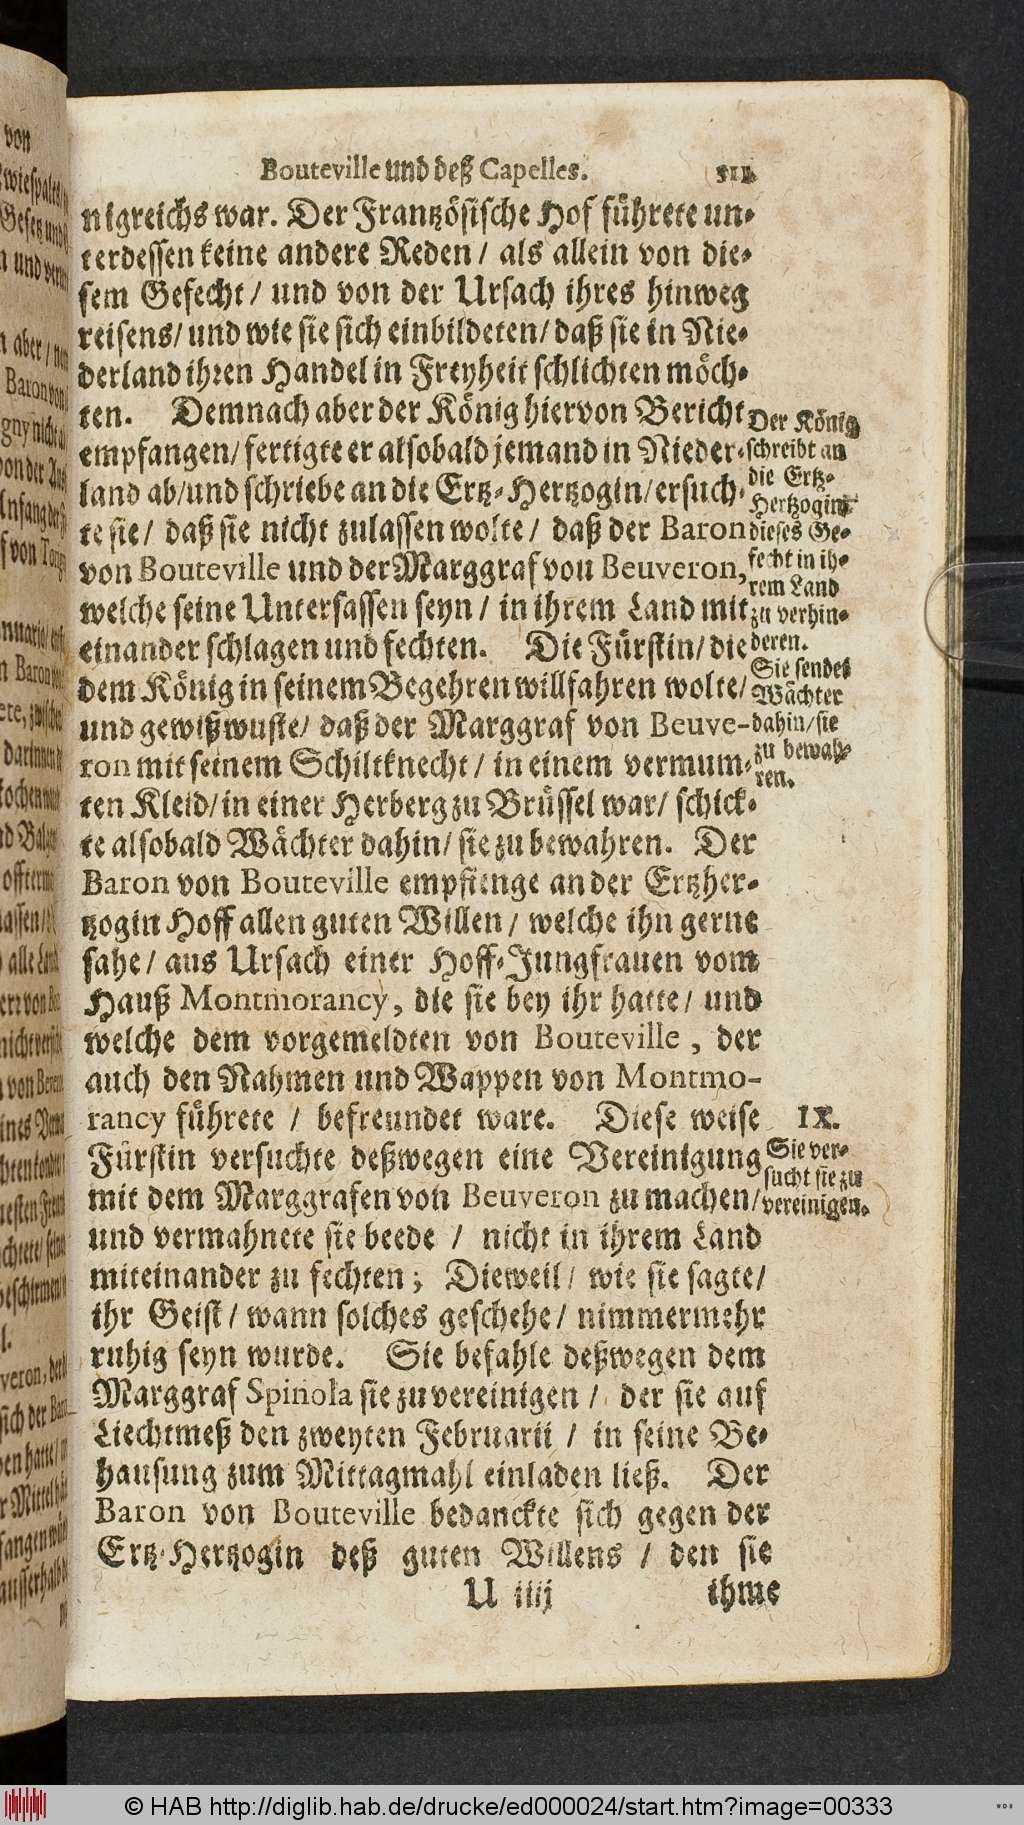 Bouteville und deß Capelles. 311
nigreichs war. Der Frantzösische Hof führete un-
terdessen keine andere Reden / als allein von die-
sem Gefecht / und von der Ursach ihres hinweg
reisens / und wie sie sich einbildeten / daß sie in Nie-
derland ihren Handel in Freyheit schlichten möch-
ten. Demnach aber der König hiervon Bericht
empfangen / fertigte er alsobald jemand in Nieder-
land ab / und schriebe an die Ertz-Hertzogin / ersuch-
te sie / daß sie nicht zulassen wolte / daß der Baron
von Bouteville und der Marggraf von Beuveron,
welche seine Untersassen seyn / in ihrem Land mit
einander schlagen und fechten. Die Fürstin / die
dem König in seinem Begehren willfahren wolte /
und gewiß wuste / daß der Marggraf von Beuve-
ron mit seinem Schiltknecht / in einem vermum-
ten Kleid / in einer Herberg zu Brüssel war / schick-
te alsobald Wächter dahin / sie zu bewahren. Der
Baron von Bouteville empfienge an der Ertzher-
tzogin Hoff allen guten Willen / welche ihn gerne
sahe / aus Ursach einer Hoff-Jungfrauen vom
Hauß Montmorancy, die sie bey ihr hatte / und
welche dem vorgemeldten von Bouteville, der
auch den Nahmen und Wappen von Montmo-
rancy führete / befreundet ware. Diese weise
Fürstin versuchte deßwegen eine Vereinigung
mit dem Marggrafen von Beuveron zu machen /
und vermahnete sie beede / nicht in ihrem Land
miteinander zu fechten; Dieweil / wie sie sagte /
ihr Geist / wann solches geschehe / nimmermehr
ruhig seyn wurde. Sie befahle deßwegen dem
Marggraf Spinola sie zu vereinigen / der sie auf
Liechtmeß den zweyten Februarii / in seine Be-
hausung zum Mittagmahl einladen ließ. Der
Baron von Bouteville bedanckte sich gegen der
Ertz-Hertzogin deß guten Willens / den sie
U iiij ihme
Der König
schreibt an
die Ertz-
Hertzogin
dieses Ge-
fecht in ih-
rem Land
zu verhin-
deren.
Sie sendet
Wächter
dahin / sie
zu bewah-
ren.
IX.
Sie ver-
sucht sie zu
vereinigen.
© HAB http://diglib.hab.de/drucke/ed000024/start.htm?image=00333